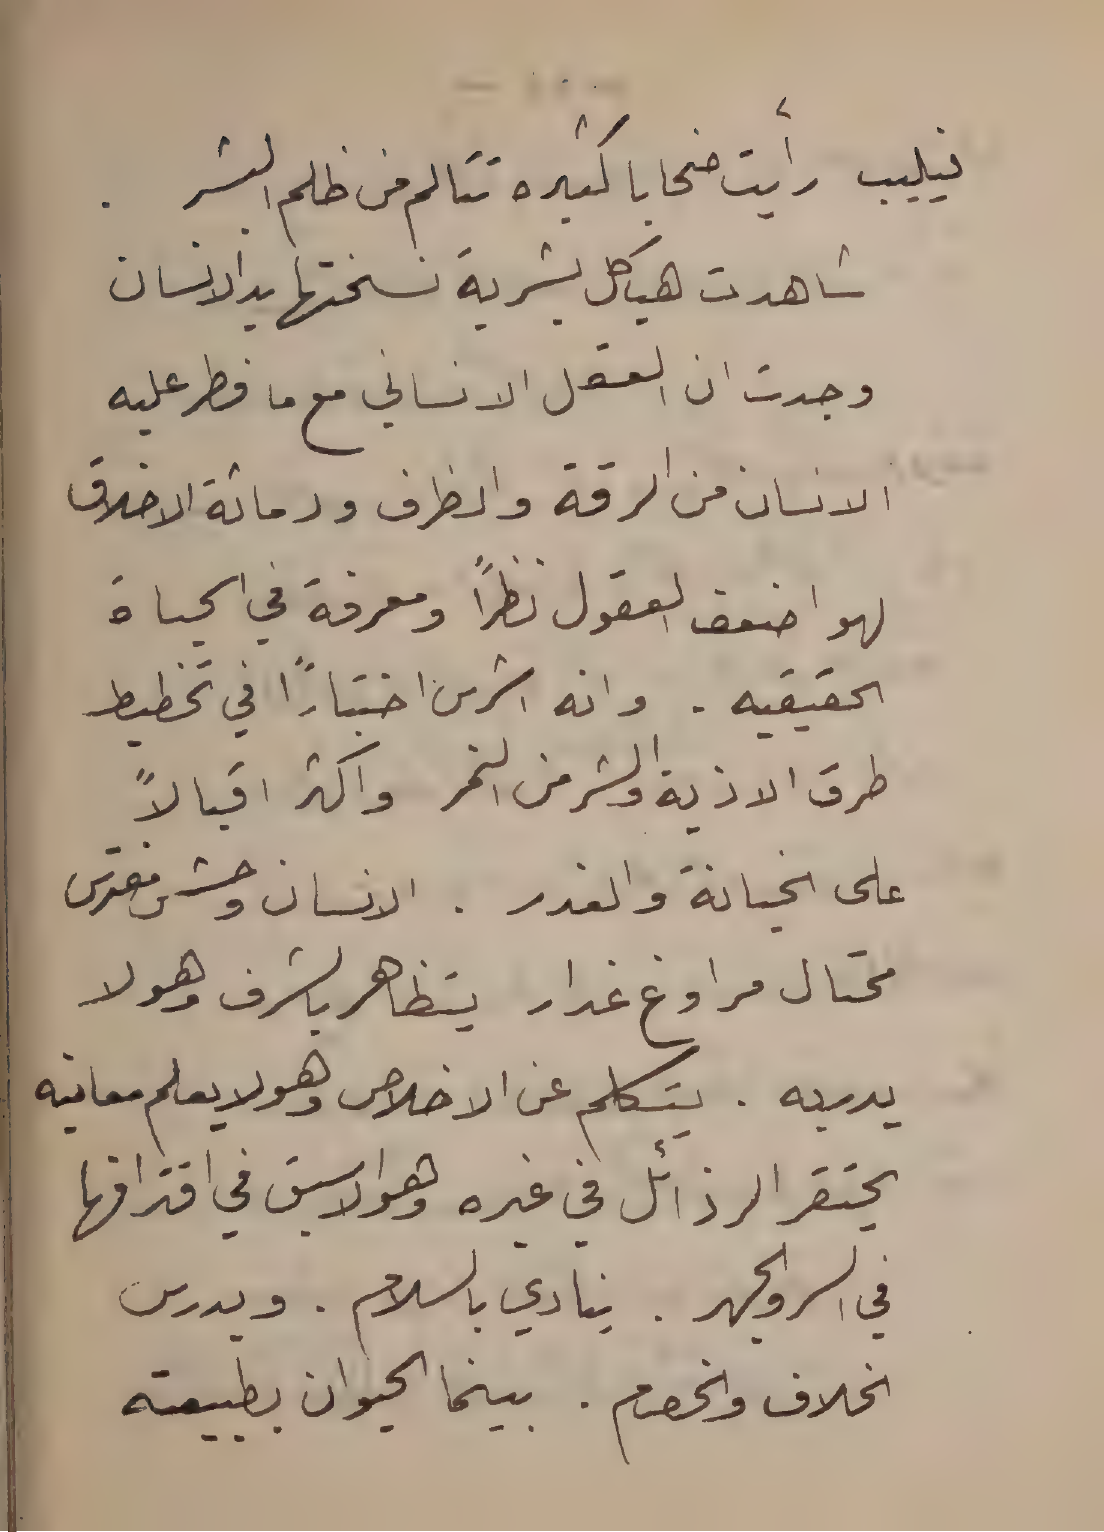 فيليب رأيت ضحايا كثيره تتالم من ظلم البشر .
شاهدت هياكل بشرية نسختها يد الانسان
وجدت ان العقل الانساني مع ما فطر عليه
الانسان من الرقة والظرف ودماثة الاخلاق
لهو اضعف العقول نظراً ومعرفة في الحياة
الحقيقيه . وانه اشرس اختباراً في تخطيط
طرق الاذية والشر من النمر واكثر اقبالاً
على الخيانة والغدر . الانسان وحش مفترس
محتال مراوغ غدار يتظاهر بالشرف وهو لا
يدريه . يتكلم عن الاخلاص وهو لا يعلم معانيه
يحتقر الرذائل في غيره وهو الاسبق في اقترافها
في السر والجهر . ينادي بالسلام . ويدرس
الخلاف والخصام . بينما الحيوان بطبيعته